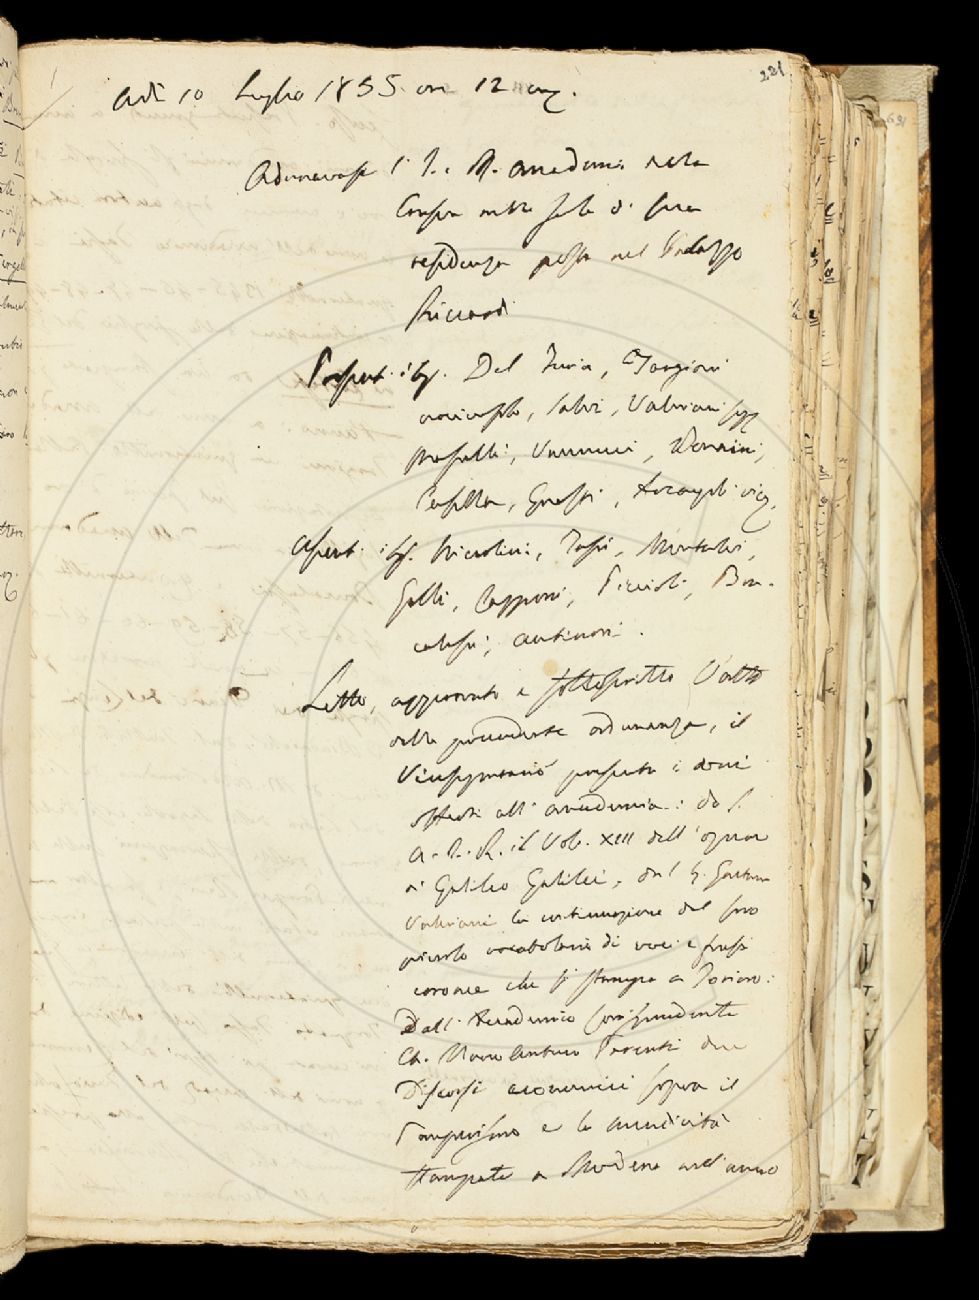 221
Adì 10 Luglio 1855 ore 12 mer.
Adunavasi l'I. e R. Accademia nella
Consueta sala di sua
residenza posta nel Palazzo
Riccardi
Present. i SS. Del Furia, Targioni
Arcangeli, Salvi, Valeriani
Vannucci,
Casella, Grossi, Arcangeli vices.
Assent. i SS. Niccolini, Tassi, Montalvi,
Gelli, Capponi, Piccioli, Bon-
calossi, Antinori.
Letto, approvato e sottoscritto l'atto
della precedente adunanza, il
Vicesegretario presenta i doni
offerti all'Accademia: da S.
A. I. R. il Vol. XIII dell'opere
di Galileo Galilei, dal S. Gaetano
Valeriani la continuazione del suo
piccolo vocabolario di voci e frasi
erronee che si stampa a Torino:
Dall'Accademico Corrispondente
Cav. Marco Antonio Parenti due
Discorsi accademici sopra il
e la mendicità
stampati a Modena nell'anno